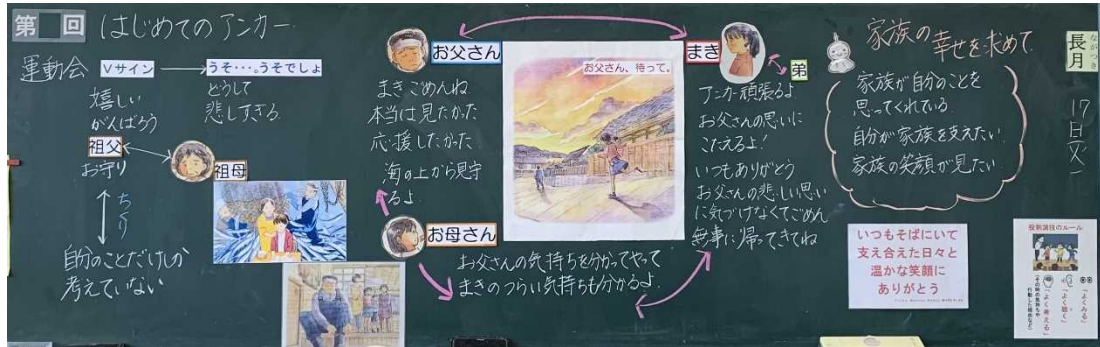 第 回 はじめてのアンカー
運動会
Vサイン
うそ…。うそでしょ
嬉しい
がんばろう
どうして
悲しすぎる
祖父
お守り
祖母
ちくり
自分のことだけしか
考えていない
お父さん
まきごめんね
本当は見たかった
応援したかった
海の上から見守
るよ
お母さん
お父さんの気持ちを分かってやって
まきのつらい気持ちも分かるよ
お父さん、待って。
まき
弟
アンカー頑張るよ
お父さんの思いに
こたえるよ!
いつもありがとう
お父さんの悲しい思い
に気づけなくてごめん
無事に帰ってきてね
家族の幸せを求めて
家族が自分のことを
思ってくれている
自分が家族を支えたい
家族の笑顔が見たい
いつもそばにいて
支え合えた日々と
温かな笑顔に
ありがとう
ながつき
長月
17日(火)
役割演技のルール
「よくみる」
「よく聴く」
「よく考える」